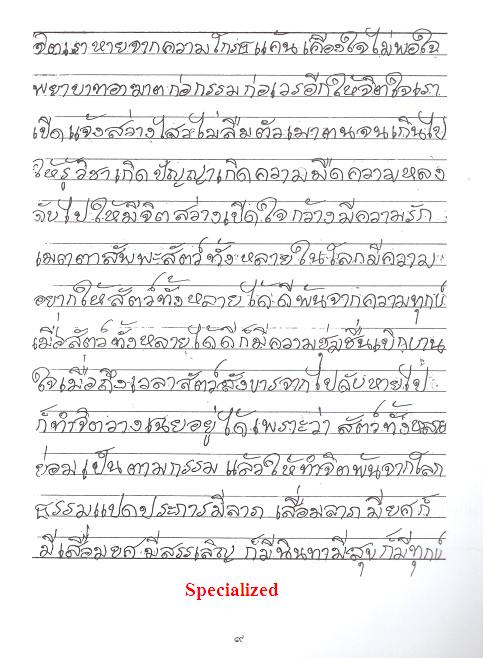 จิตเราหายจากความโกรธแค้นเคืองใจไม่พอใจ
พยาบาทอาฆาตก่อกรรมก่อเวรอีกให้จิตใจเรา
เปิดแจ้งสว่างไสวไม่ลืมตัวเมาตนจนเกินไป
ให้รู้วิชาเกิดปัญญาเกิดความมืดความหลง
ดับไปให้มีจิตสว่างเปิดใจกว้างมีความรัก
เมตตาสัพพะสัตว์ทั้งหลายในโลกมีความ
อยากให้สัตว์ทั้งหลายได้ดีพ้นจากความทุกข์
เมื่อสัตว์ทั้งหลายได้ดีก็มีความชุ่มชื่นเบิกบาน
ใจเมื่อถึงเวลาสัตว์สังขารจากไปดับหายไป
ก็ทำจิตวางเฉยอยู่ได้เพราะว่าสัตว์ทั้งหลาย
ย่อมเป็นตามกรรม แล้วให้ทำจิตพ้นจากโลก
ธรรมแปดประการมีลาภ เสื่อมลาภ มียศก็
มีเสื่อมยศ มีสรรเสริญ ก็มีนินทามีสุขก็มีทุกข์
Specialized
๙